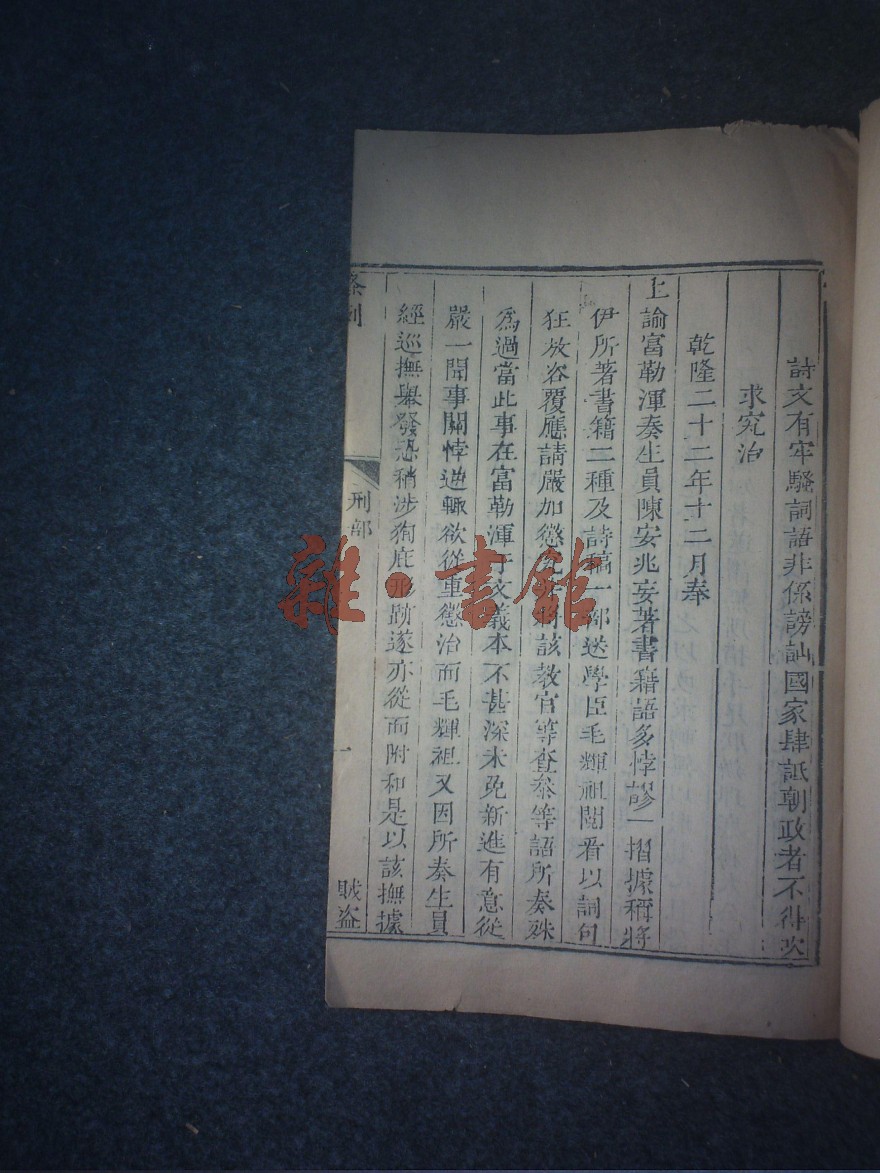 詩文有牢騷詞語非係謗訕國家肆詆朝政者不得吹
求究治
乾隆二十二年十二月奉
上諭富勒渾奏生員陳安兆妄著書籍語多悖謬一摺據稱將
伊所著書籍二種及詩稿一部送學臣毛輝祖閱看以詞句
狂放容覆應請嚴加懲 將該教官等查叅等語所奏殊
為過當此事在富勒渾于文義本不甚深未免新進有意從
嚴一聞事關悖逆輒欲從重懲治而毛輝祖又因所奏生員
經巡撫舉發恐稍涉狥庇形跡遂亦從而附和是以該撫據
条例
刑部
一
賊盗
雜·書館